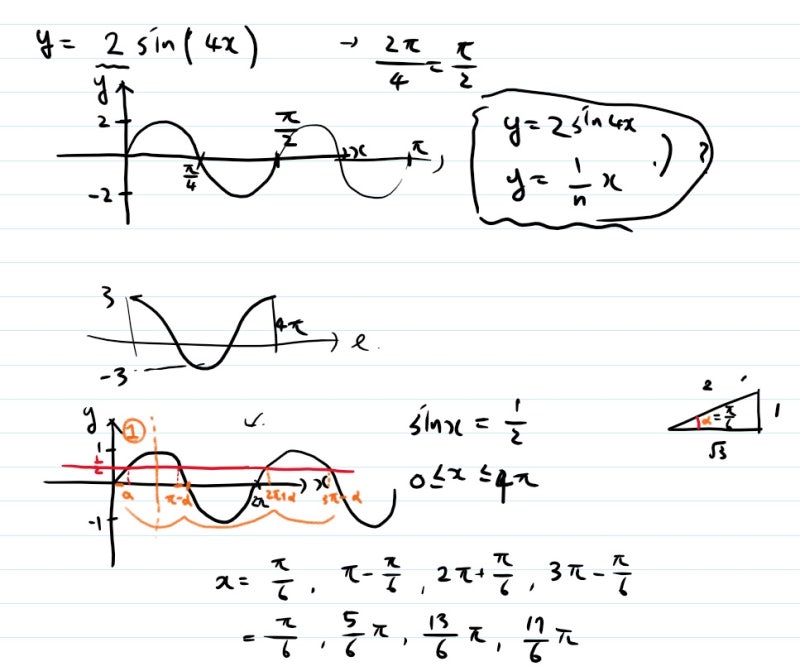 y = 2 sin(4x) → 2π/4 = π/2
y
2
π/2
x
π
π/4
-2
y = 2 sin 4x
y = 1/n x
?
3
4π
-3
y
①
1
1/2
α
π-α
2π
2π+α
x
3π-α
-1
sin x = 1/2
0 ≤ x ≤ 4π
2
1
α = π/6
√3
x = π/6 , π - π/6 , 2π + π/6 , 3π - π/6
= π/6 , 5/6 π , 13/6 π , 17/6 π